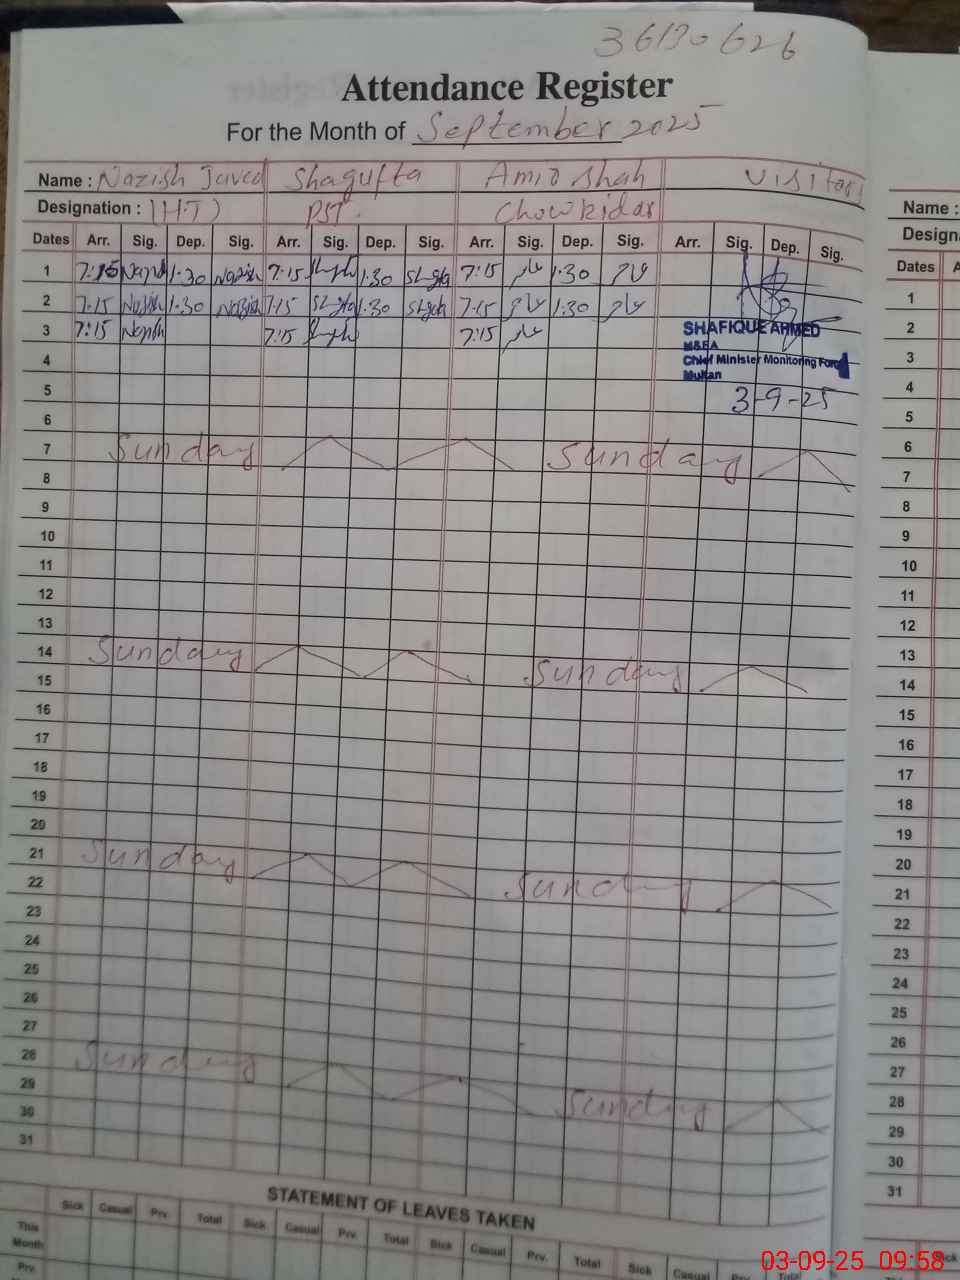 36130626
Attendance Register
For the Month of September 2025
Name : Nazish Javed Shagufta Amir Shah Visitors
Designation : (H.T) PST. Chowkidar
Dates Arr. Sig. Dep. Sig. Arr. Sig. Dep. Sig. Arr. Sig. Dep. Sig. Arr. Sig. Dep. Sig.
1 7:15 Nazish 1.30 Nazish 7.15 1:30 7:15 1.30
2 7.15 Nazish 1.30 Nazish 7.15 1.30 7.15 1.30
3 7:15 Nazish 7:15 7:15
SHAFIQUE AHMED
M&EA
Chief Minister Monitoring Force
Multan
3-9-25
4
5
6
7 Sunday Sunday
8
9
10
11
12
13
14 Sunday Sunday
15
16
17
18
19
20
21 Sunday Sunday
22
23
24
25
26
27
28 Sunday Sunday
29
30
31
STATEMENT OF LEAVES TAKEN
Sick Casual Prv. Total Sick Casual Prv. Total Sick Casual Prv. Total Sick Casual Prv. Total
This
Month
Prv.
Name :
Design
Dates A
1
2
3
4
5
6
7
8
9
10
11
12
13
14
15
16
17
18
19
20
21
22
23
24
25
26
27
28
29
30
31
Sick
03-09-25 09:58